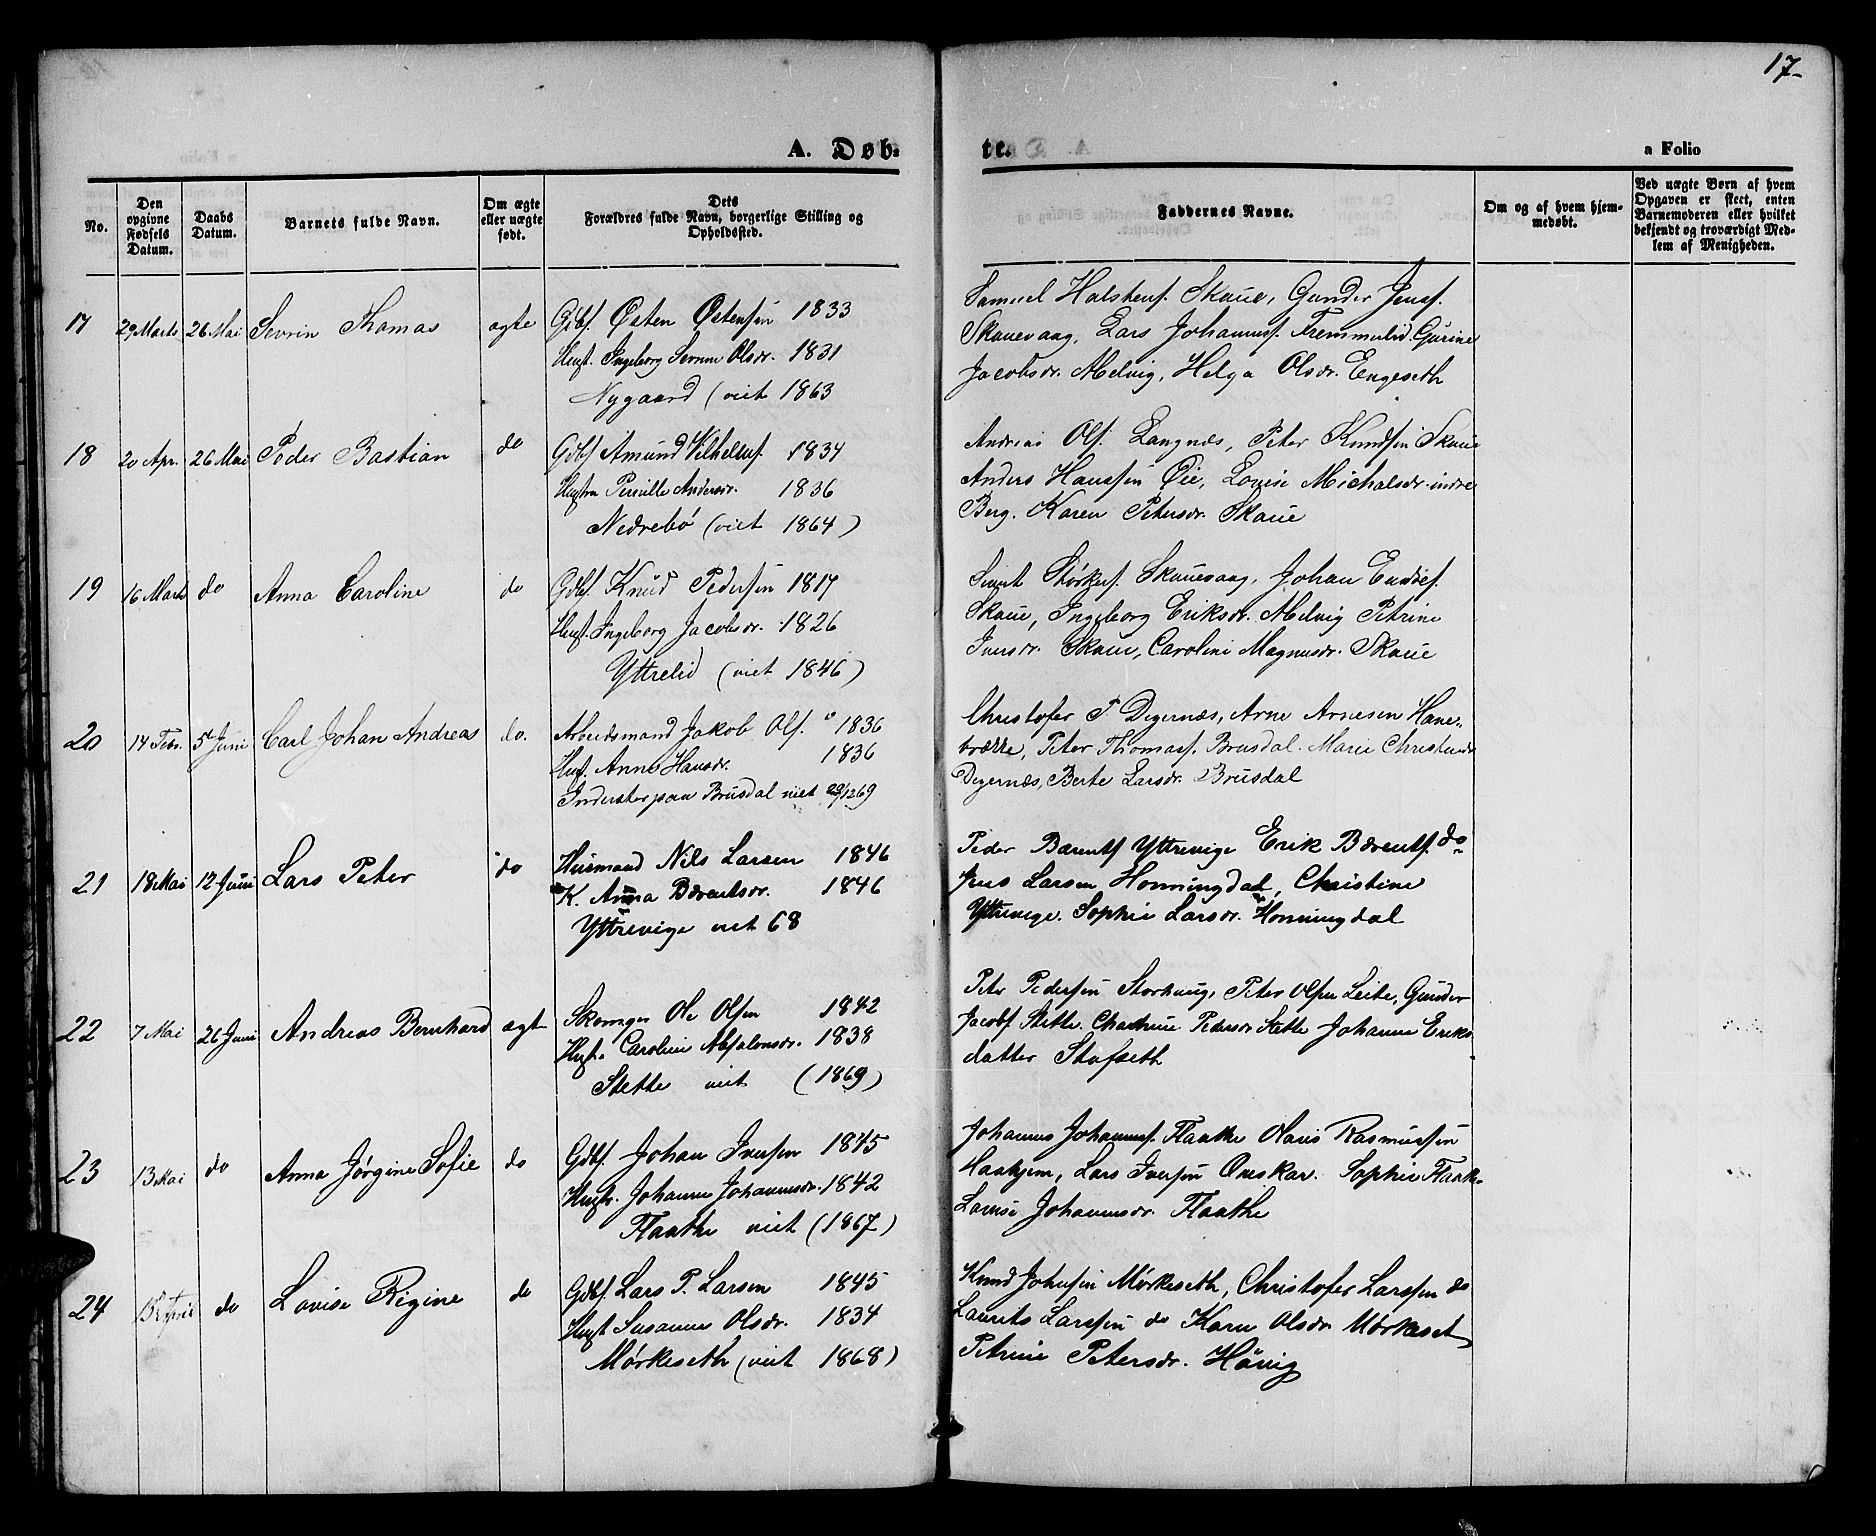 17-
A. Døb-
te.
a Folio
No.
Den opgivne Fødsels Datum.
Daabs Datum.
Barnets fulde Navn.
Om ægte eller uægte født.
Dets Forældres fulde Navn, borgerlige Stilling og Opholdssted.
Faddernes Navne.
Om og af hvem hjem-
medøbt.
Ved uægte Børn af hvem
Opgaven er skeet, enten
Barnemoderen eller hvilket
bekjendt og troværdigt Med-
lem af Menigheden.
17 29 Marts 26 Mai Sevrin Thomas ægte Gdbf. Østen Østensen 1833
Hust. Ingeborg Serine Olsdr. 1831
Nygaard (viet 1863
Samuel Halstens. Skaue, Gunder Jenss.
Skauevaag, Lars Johanness. Fremmerlid, Gurine
Jacobsdr. Melvig, Helga Olsdr. Engeseth
18 20 Apr. 26 Mai Peder Bastian do Gdbf Amund Vilhelms. 1834
Hustru Pernille Andersdr. 1836
Nedrebø (viet 1864)
Andreas Ols. Langnæs, Peter Knudsen Skaue
Anders Hanssen Øie, Lovise Michalsdr. indre
Berg. Karen Petersdr. Skaue
19 16 Marts do Anna Caroline do Gdbf. Knud Pedersen 1817
Hust. Ingeborg Jacobsdr. 1826
Yttrelid (viet 1846)
Størkers. Skauevaag, Johan
Skaue, Ingeborg Eriksdr. Melvig Petrine
Iversdr. Skaue, Caroline Magnusdr. Skaue
20 14 Febr. 5 Juni Carl Johan Andreas do. Arbeidsmand Jakob Ols. 1836
Hust. Anne Hansdr. 1836
Inderster paa Brusdal viet 29/12 69
Christofer P. Degernæs, Arne Arnesen Hane-
brække, Peter Thomass. Brusdal. Marie
Degernæs, Berte Larsdr. Brusdal
21 18 Mai 12 Juni Lars Peter do Husmand Nils Larsen 1846
K. Anna Bærentsdr. 1846
Yttrevige viet 68
Peder Bærents Yttrevige Erik Bærents. do
Jens Larsen Honningdal, Christine
Yttrevige. Sophie Larsdr. Honningdal
22 7 Mai 26 Juni Andreas Bernhard ægt Skomager Ole Olsen 1842
Hust. Caroline Absalonsdr. 1838
Stette viet (1869)
Peter Pedersen Storhaug, Peter Olsen Leite, Gunder
Jacobs Stette. Cathrine Pedersdr Stette Johanne Eriks
datter Stafseth
23 13 Mai do Anna Jørgine Sofie do Gdbf. Johan Iversen 1845
Hustr. Johanne Johannesdr. 1842
Flaathe viet (1867)
Johannes Johanness. Flaathe Olaus Rasmussen
Haahjem, Lars Iversen Onskar. Sophie Flaathe
Lovise Johannesdr. Flaathe
24 15 April do Lovise Rigine do Gdbf. Lars P. Larsen 1845
Hust Susanne Olsdr. 1834
Mørkeseth (viet 1868)
Knud Johnsen Mørkeseth, Christofer Larssen do
Laurits Larssen do Karen Olsdr Mørkeset
Petrine Petersdr. Håvig